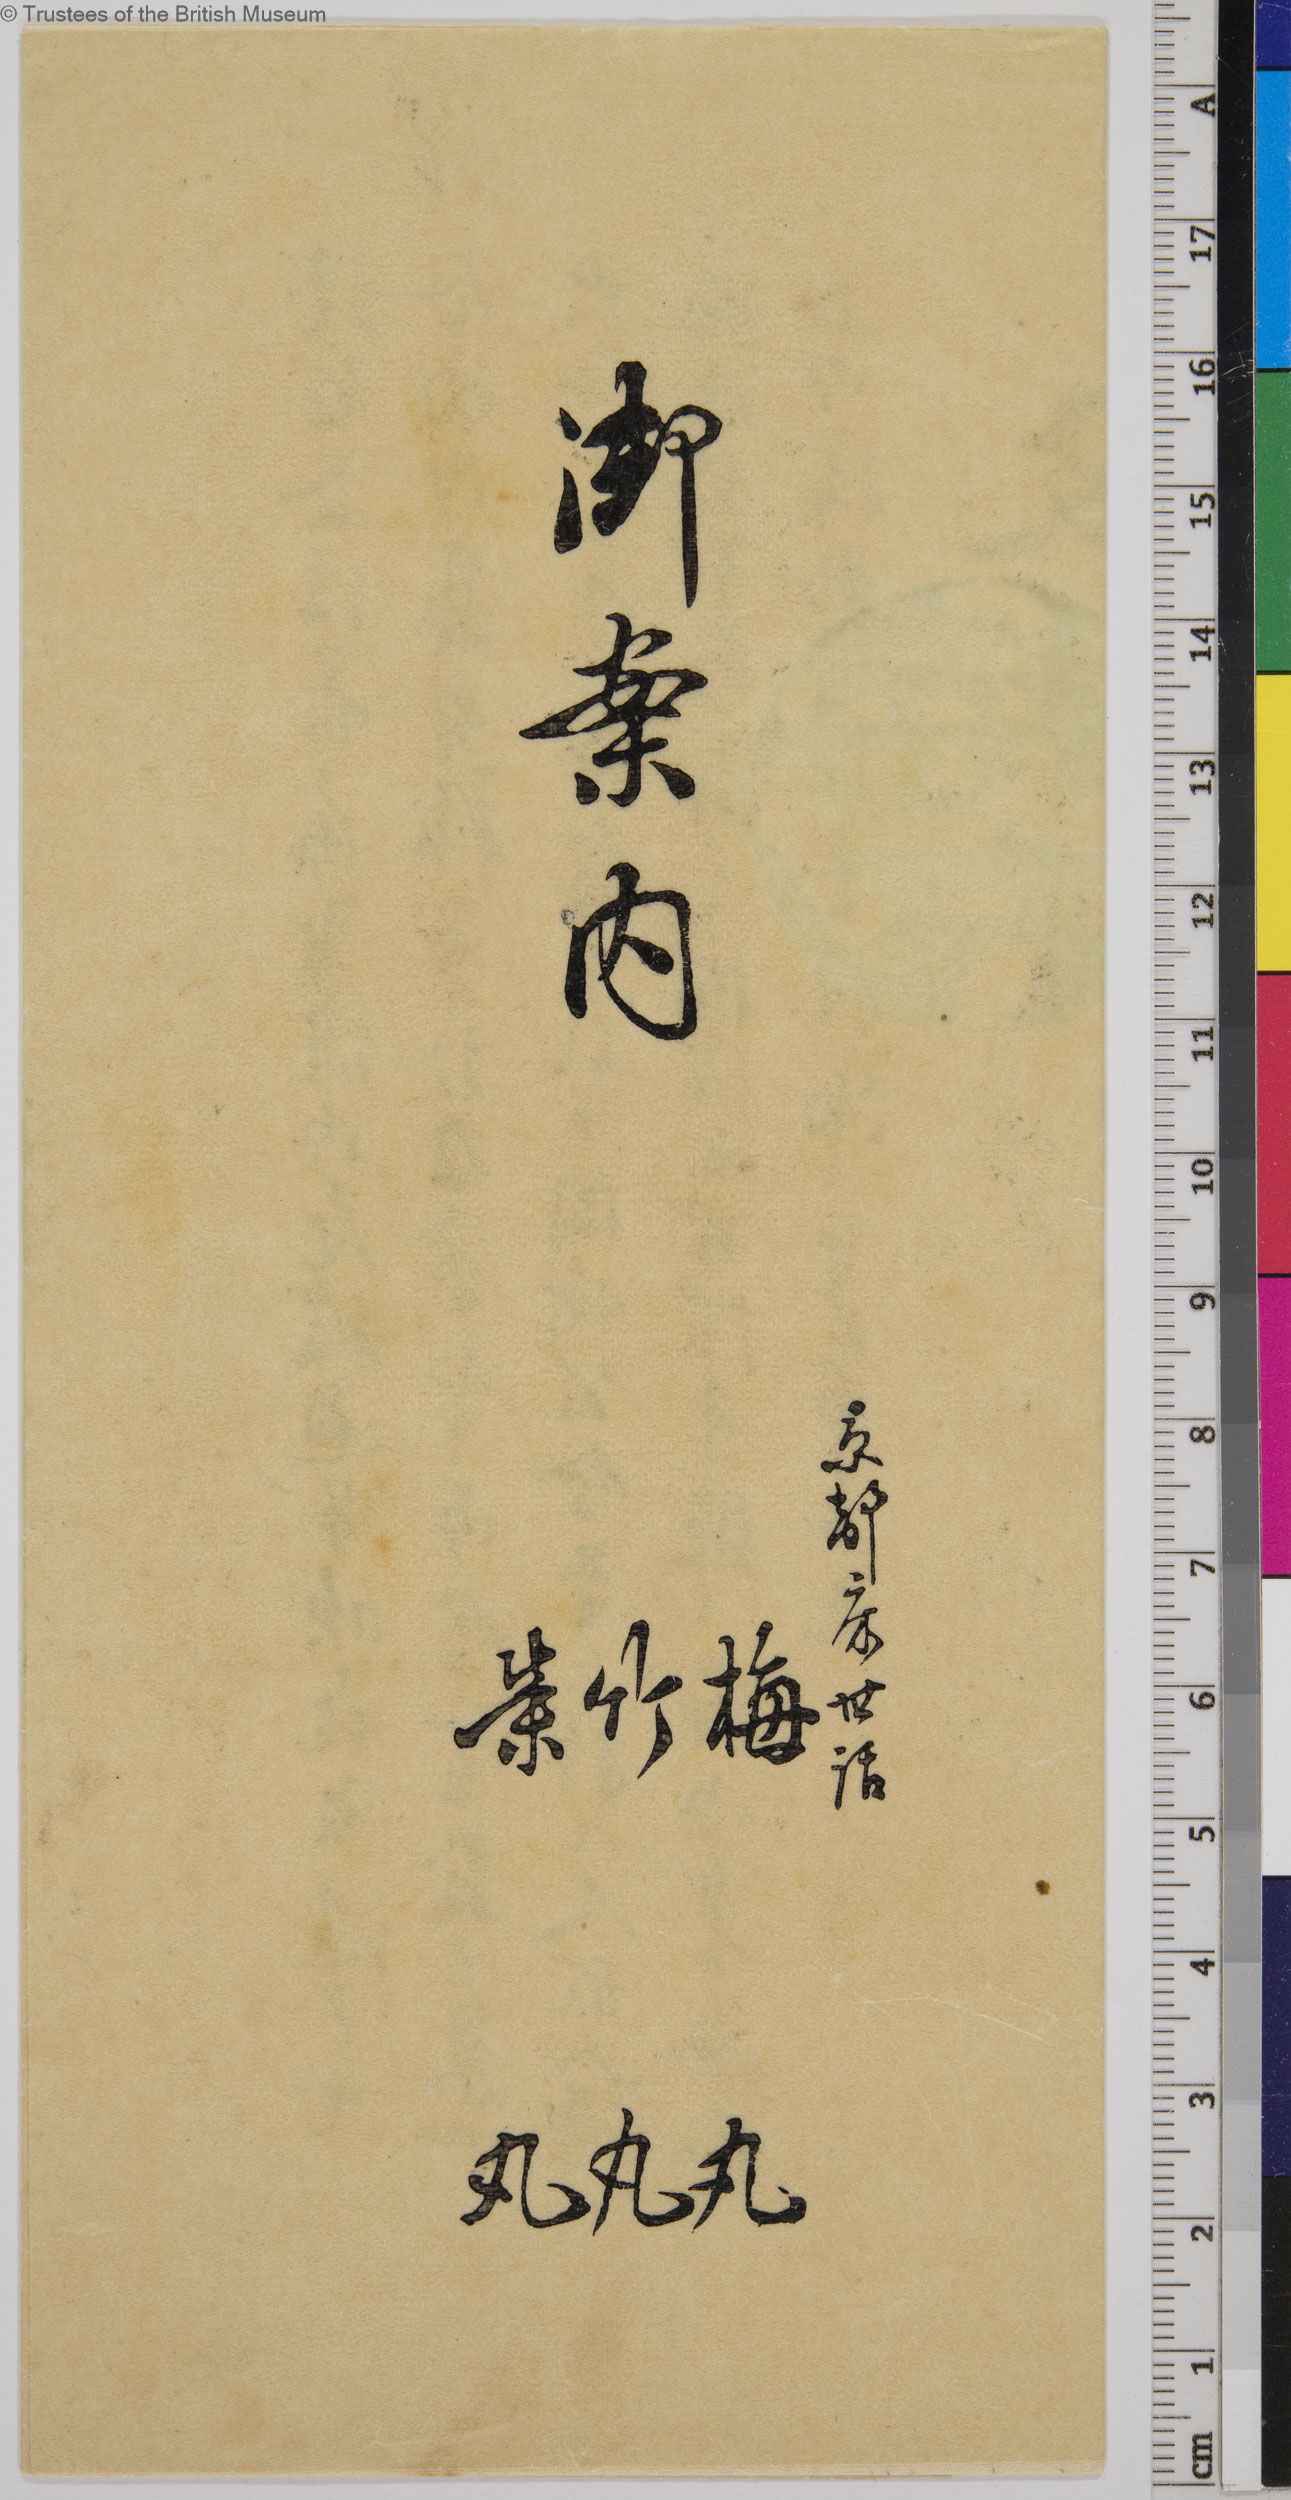 © Trustees of the British Museum
御案内
京都床世話
梅丸
竹丸
葉丸
A
17
16
15
14
13
12
11
10
9
8
7
6
5
4
3
2
1
cm